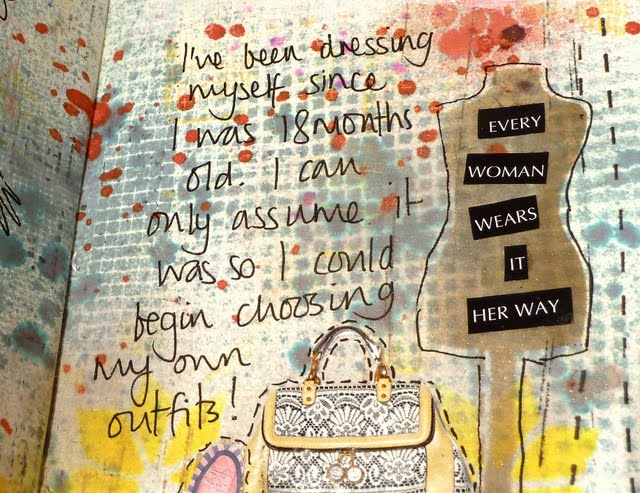 I've been dressing
myself since
I was 18 months
old. I can
only assume it
was so I could
begin choosing
my own
outfits!
EVERY
WOMAN
WEARS
IT
HER WAY